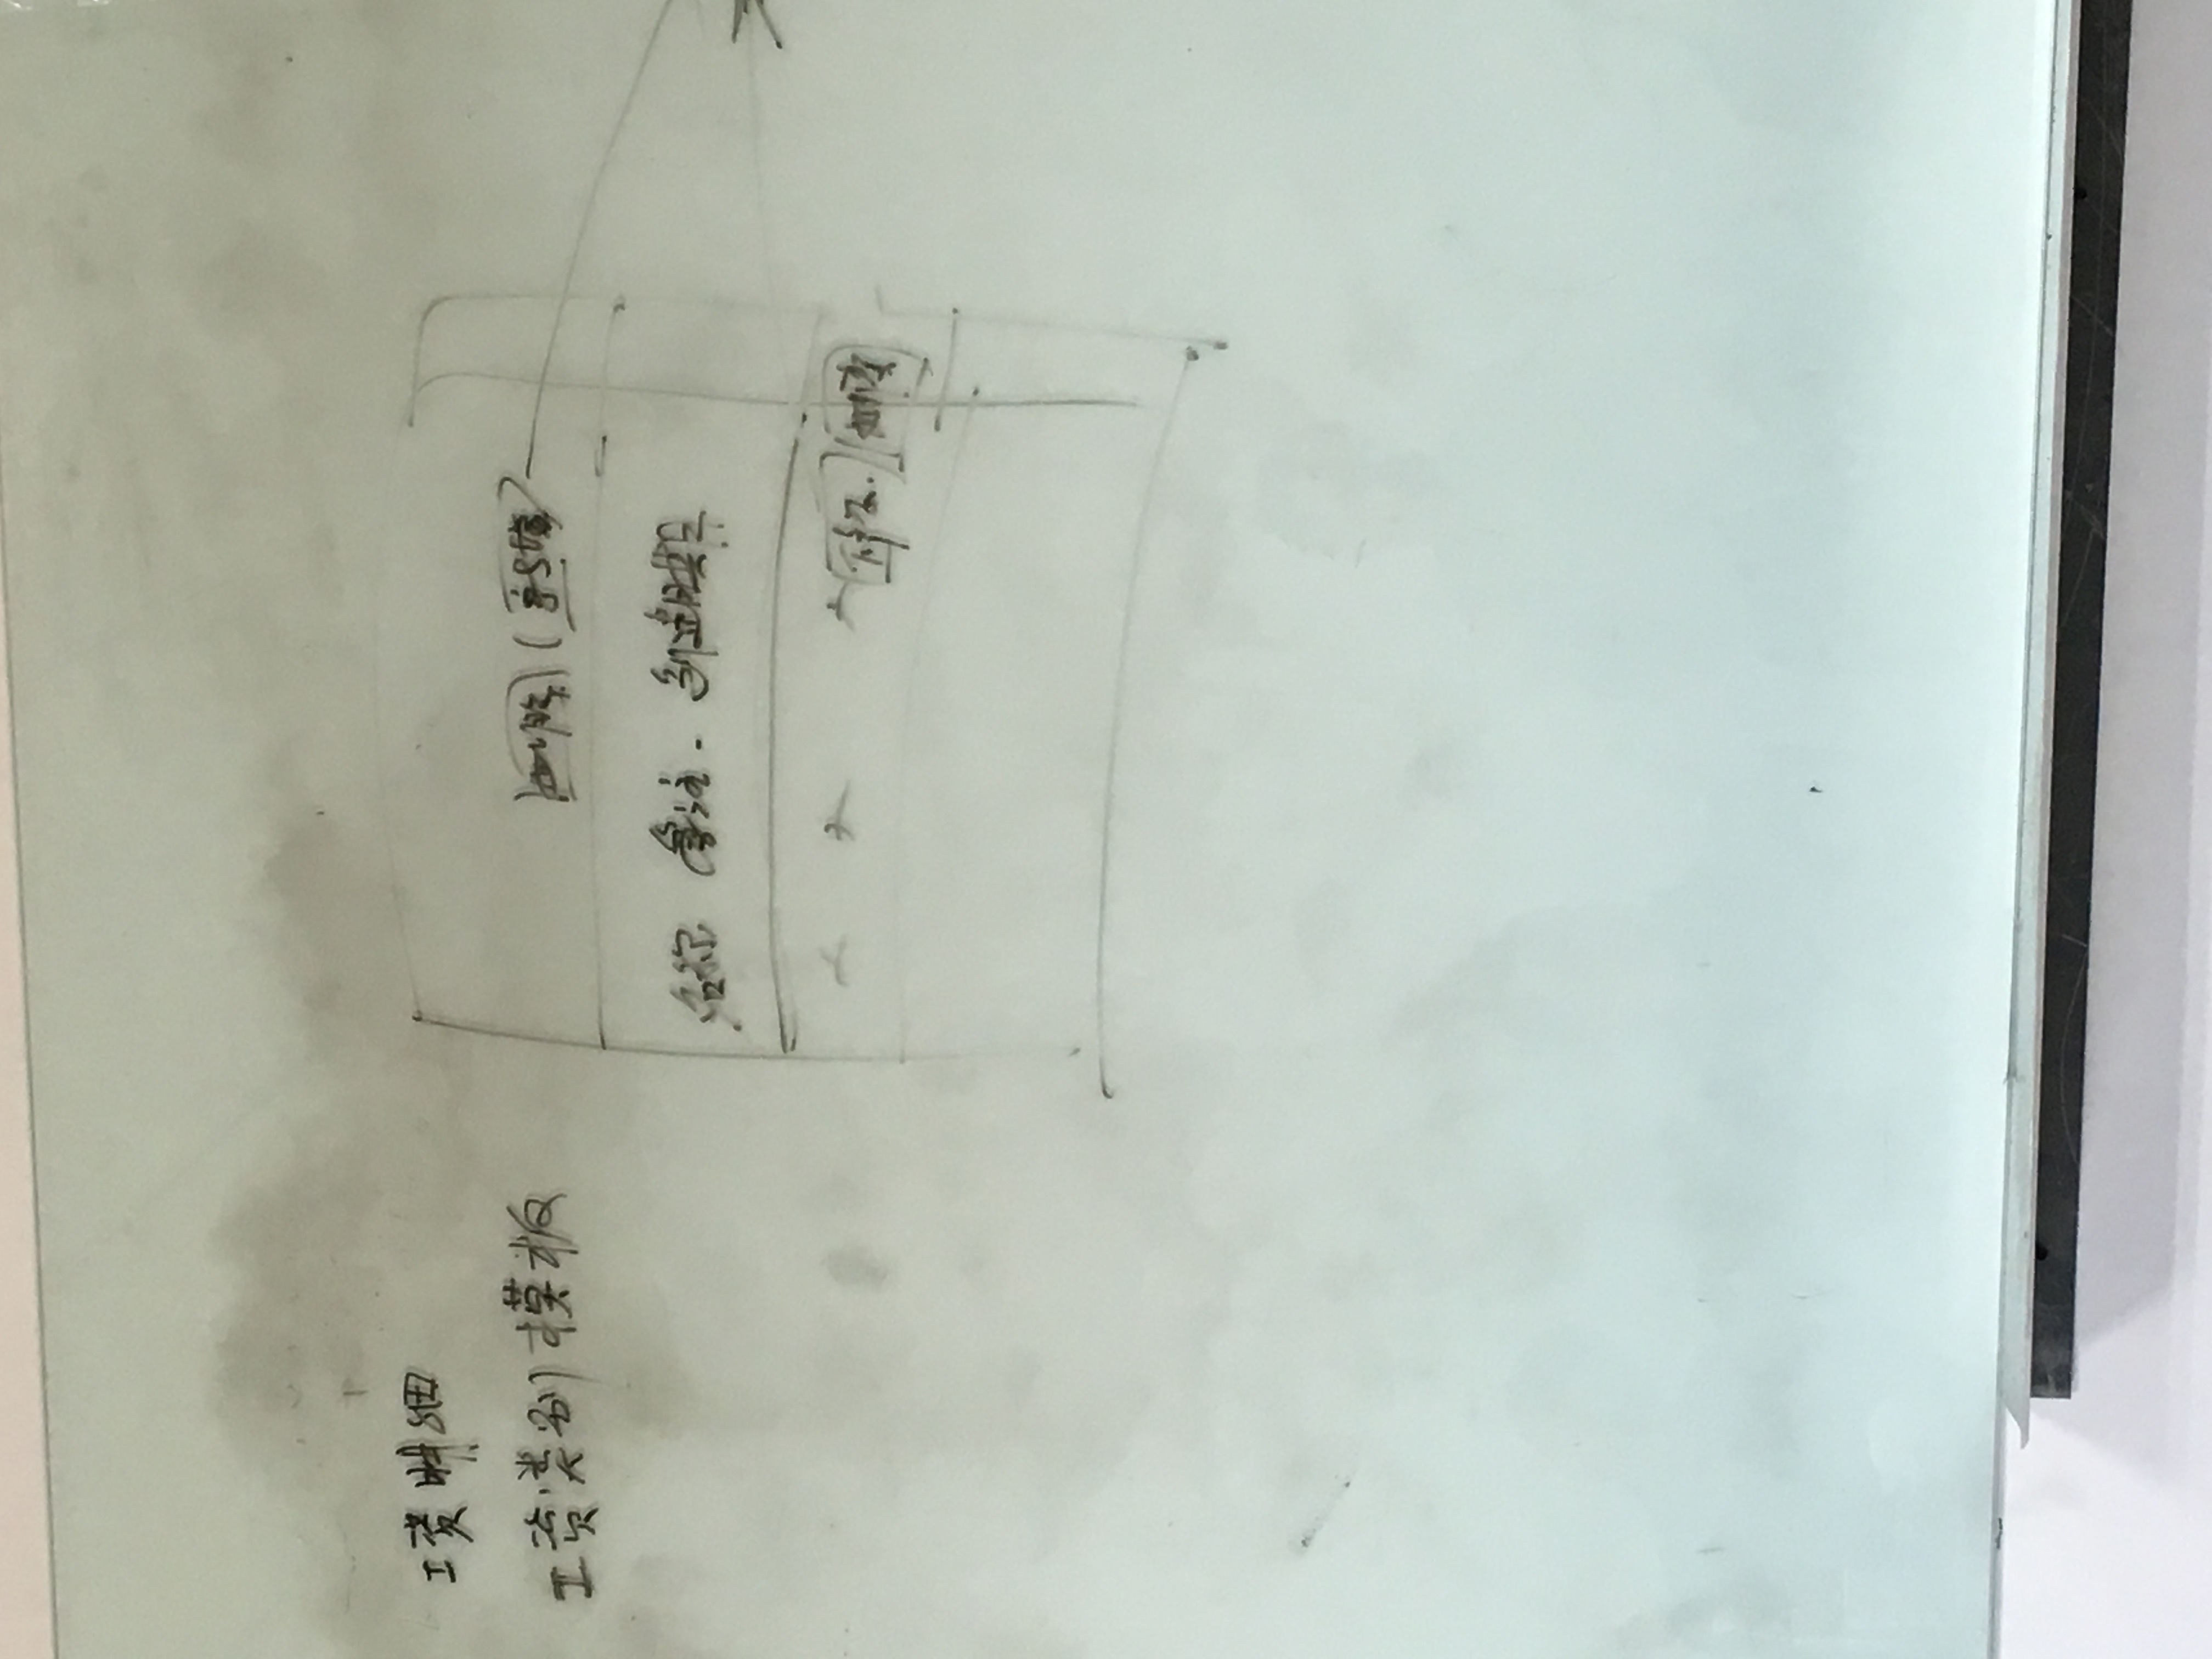 工资明细
工资类别模板
删除 新增
名称 备注. 创建日期
修改. 删除